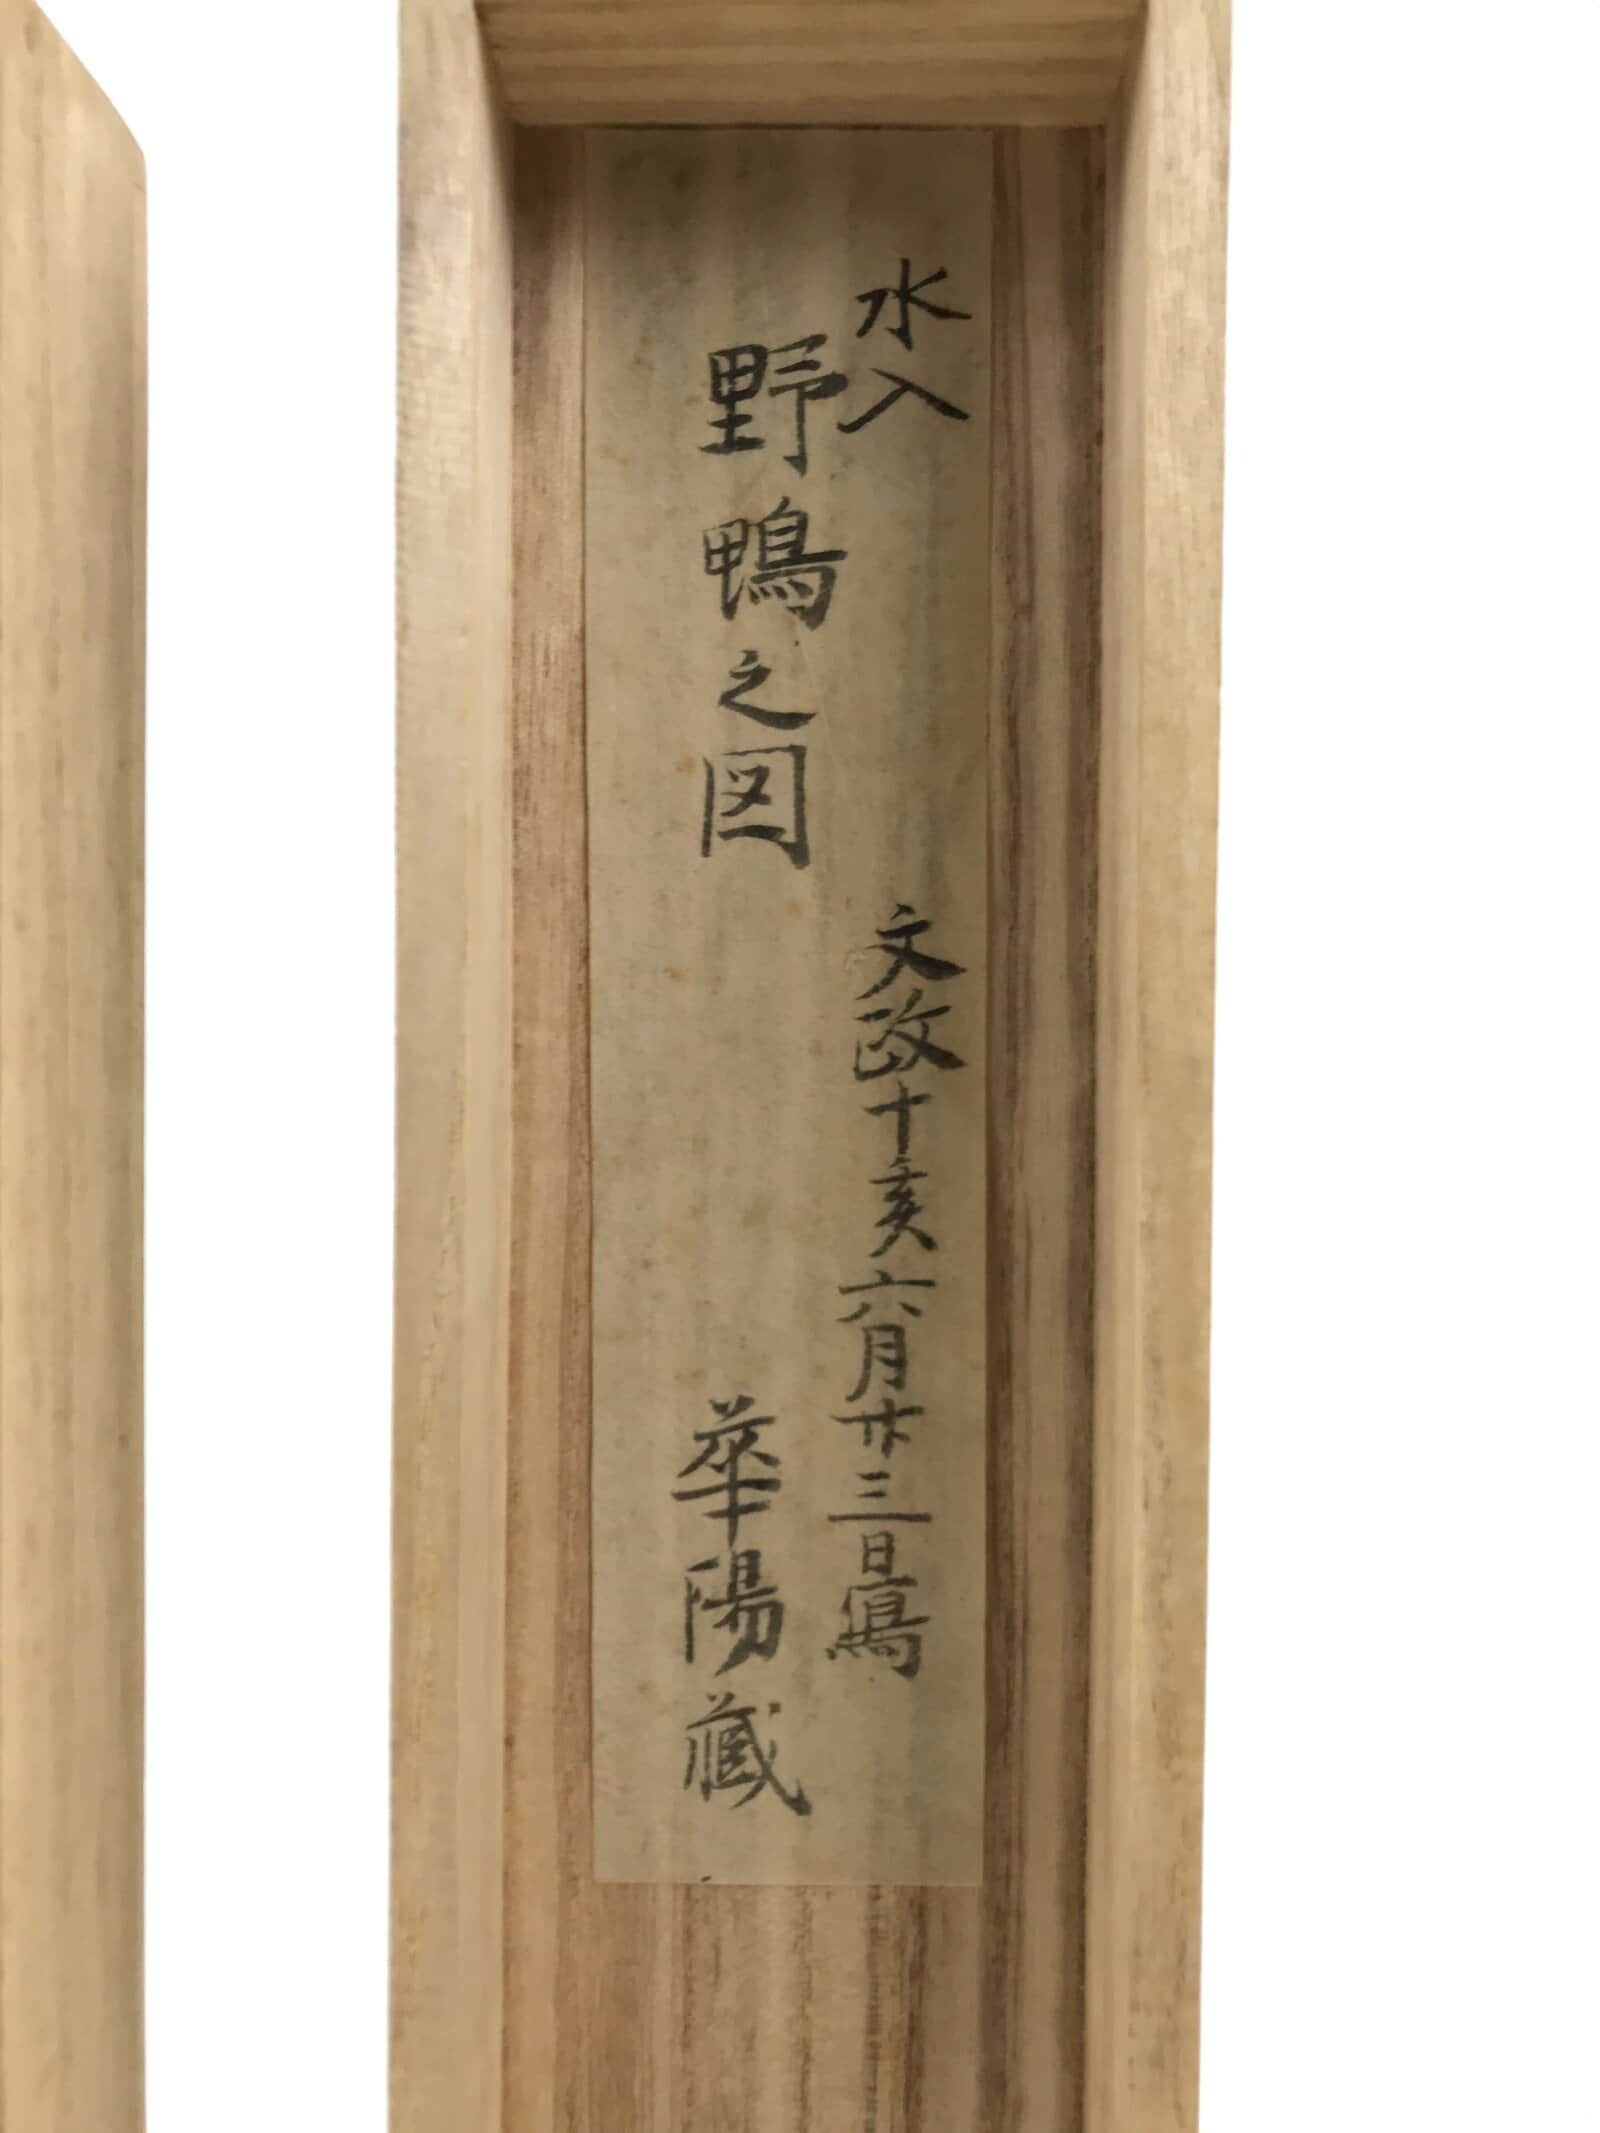 水入
野鴨之図
文政十亥六月廿三日寫
華陽蔵